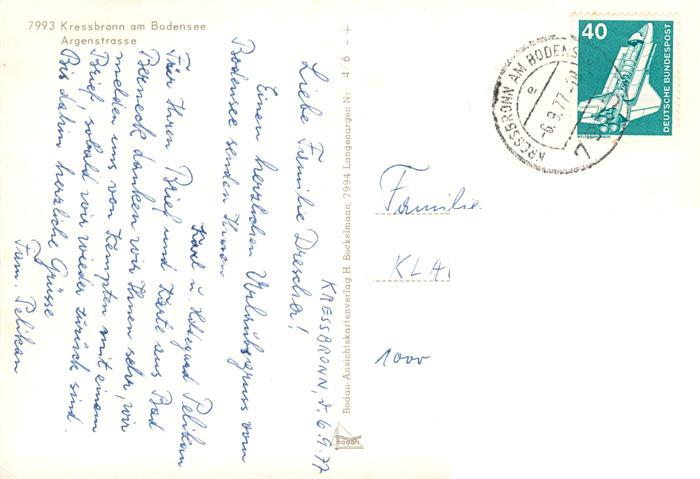 7993 Kressbronn am Bodensee
Argenstrasse
KRESSBRONN, d. 6.9.77
Liebe Familie Drescher!
Einen herzlichen Urlaubsgruss vom
Bodensee senden Ihnen
Karl u. Hildegard Pelikan
Für Ihren Brief und Karte aus Bad
Berneck danken wir Ihnen sehr, wir
melden uns von Kempten mit einem
Brief sobald wir wieder zurück sind.
Bis dahin herzliche Grüsse
Fam. Pelikan
Bodan-Ansichtskartenverlag H. Bockelmann, 7994 Langenargen Nr. 4 6 - +
bodan
40
DEUTSCHE BUNDESPOST
KRESSBRONN AM BODENS
e
-6.9.77
7
Familie
KLA
1000